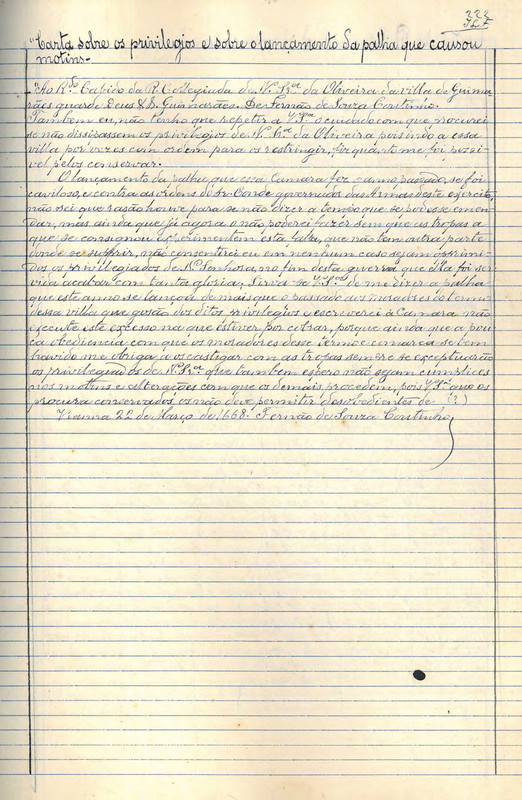 222
"Carta sobre os privilegios e sobre o lançamento da palha que causou
motins-
"Ao R.do Cabido da R. Collegiada de N. Snr.a da Oliveira da villa de Guima
rães guarde Deus &. Guimarães. De Fernão de Souza Coutinho.
Tambem eu não tenho que repetir a V.S.ria o cuidado com que procurei
se não dissipassem os privilegios de N. Sr.a da Oliveira pois indo a essa
villa por vezes com ordem para os restringir, fiz quanto me foi possi-
vel pelos conservar.
O lançamento da palha que essa Camara fez o anno passado, se foi
caviloso, e contra as ordens do Sr. Conde governador das Armas deste exercito,
não sei que rasão houve para se não dizer a tempo que se podesse emen-
dar, mas ainda que já agora o não poderei fazer sem que as tropas a
que se consignou experimentem esta falta, que não tem outra parte
donde se supprir, não consentirei eu em nenhum caso sejam opprimi-
dos os privilegiados de N. Senhora, no fim desta guerra que ella foi ser-
vida acabar com tanta gloria; Sirva-se V.S.ria de me dizer a palha
que este anno se lançou de mais que o passado aos moradores do termo
dessa villa que gosão dos ditos privilegios e escreverei á Camara não
execute este excesso na que estiver por cobrar, porque ainda que a pou-
ca obediencia com que os moradores desse termo e comarca se tem
havido me obriga a os castigar com as tropas sempre se exceptuarão
os privilegiados de N. Sr.a que tambem espero não sejam cumplices
nos motins e alterações com que os demais procedem, pois V.S.ria que os
procura conservados os não deve permitir desobedientes de (?)
Vianna 22 de Março de 1668. Fernão de Souza Coutinho